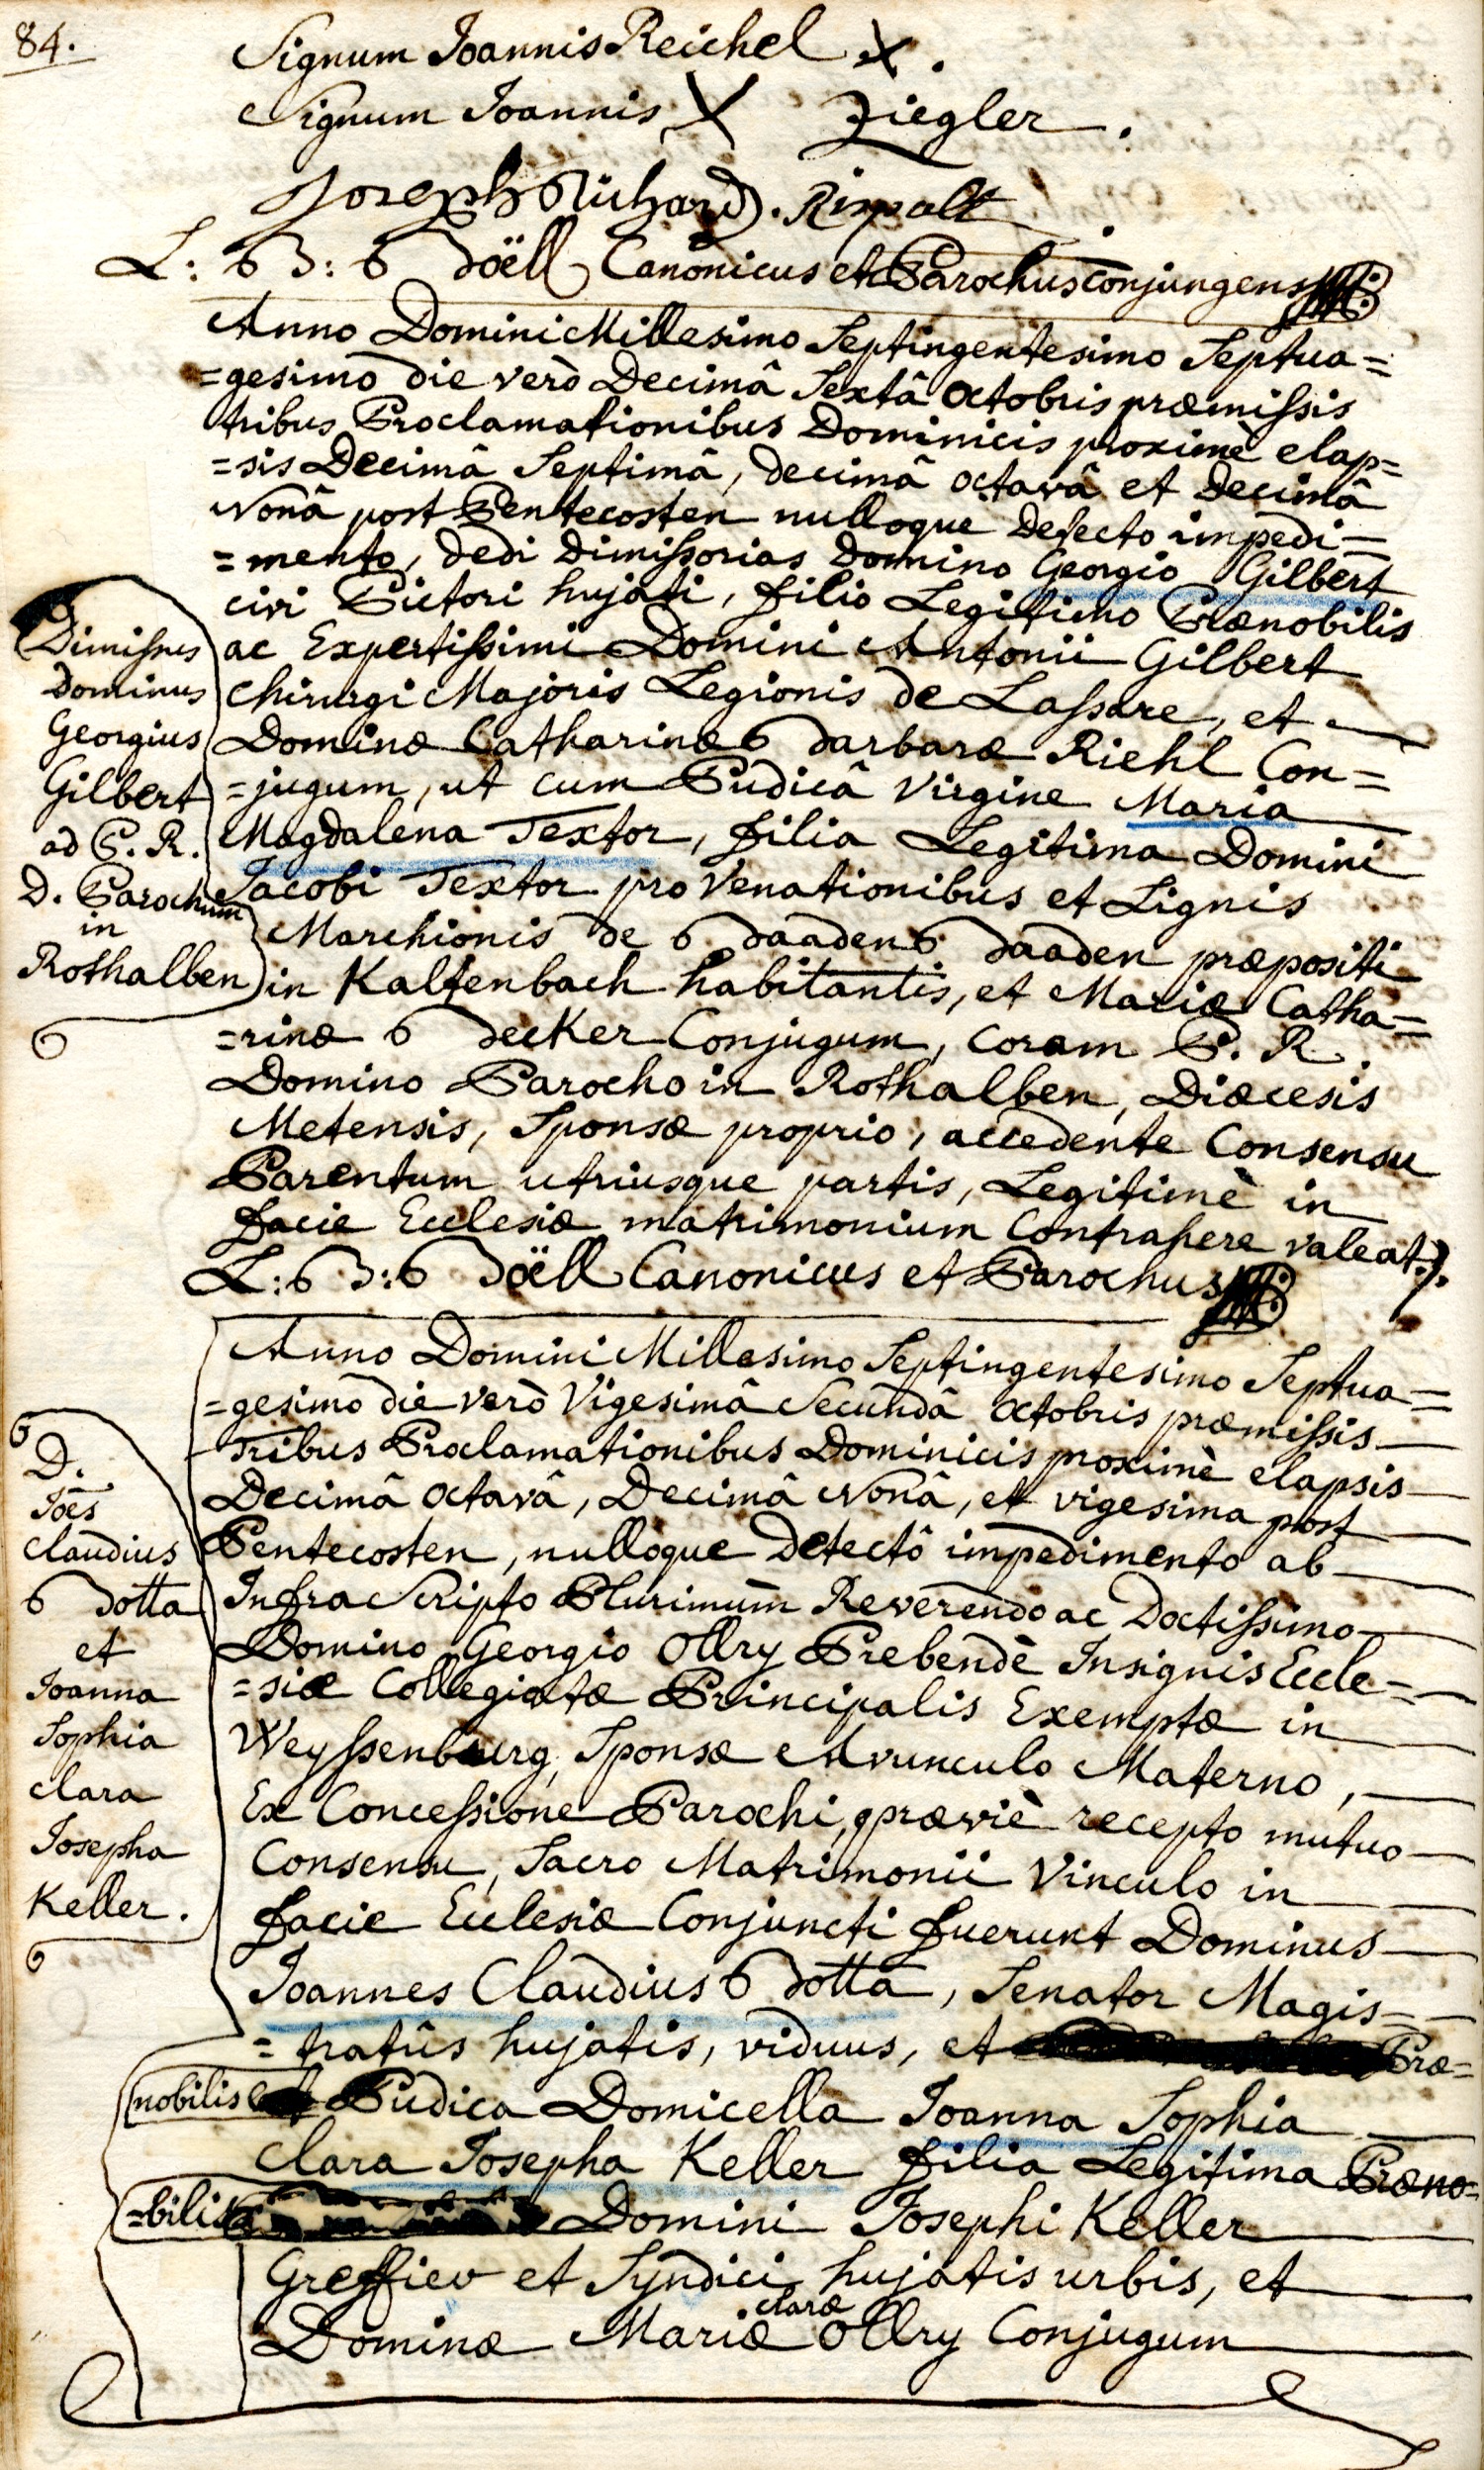 84.
Signum Joannis Reichel X.
Signum Joannis X Ziegler.
Joseph Richard. Rispalt
L: B: Boëll Canonicus et Parochus conjungens
Anno Domini Millesimo Septingentesimo Septua=
=gesimo die verò Decimâ Sextâ octobris præmissis
tribus Proclamationibus Dominicis proximè elap=
=sis Decimâ Septimâ, decimâ octavâ et Decimâ
Nonâ post Pentecosten nulloque detecto impedi=
=mento, dedi dimissorias Domino Georgio Gilbert
civi Pictori hujati, filio Legitimo Prænobilis
ac Expertissimi Domini Antonii Gilbert
Chirurgi Majoris Legionis de Lassare, et
Dominæ Catharinæ Barbaræ Riehl Con=
=jugum, ut cum Pudicâ Virgine Maria
Magdalena Textor, filia Legitima Domini
Jacobi Textor pro Venationibus et Lignis
Marchionis de Baaden Baaden præpositi
in Kaltenbach habitantis, et Mariæ Catha=
=rinæ Becker Conjugum, coram P. R.
Domino Parocho in Rothalben, Diœcesis
Metensis, Sponsæ proprio, accedente Consensu
Parentum utriusque partis, Legitimè in
facie Ecclesiæ matrimonium Contrahere valeat.
L: B: Boëll Canonicus et Parochus
Dimissus
Dominus
Georgius
Gilbert
ad P. R.
D. Parochum
in
Rothalben
Anno Domini Millesimo Septingentesimo Septua=
=gesimo die verò Vigesimâ Secundâ octobris præmissis
Tribus Proclamationibus Dominicis proximè elapsis
Decimâ octavâ, Decimâ Nonâ, et vigesima post
Pentecosten, nulloque detectô impedimento ab
Infra Scripto Plurimùm Reverendo ac Doctissimo
Domino Georgio Ollry Prebendè Insignis Eccle=
=siæ Collegiatæ Principalis Exemptæ in
Weyssenbourg, Sponsæ Avunculo Materno,
Ex Concessione Parochi, præviè recepto mutuo
Consensu, Sacro Matrimonii Vinculo in
facie Ecclesiæ Conjuncti fuerunt Dominus
Joannes Claudius Botta, Senator Magis=
=tratûs hujatis, viduus, et Præ=
nobilis Pudica Domicella Joanna Sophia
Clara Josepha Keller filia Legitima Præno=
=bilis Domini Josephi Keller
Greffier et Syndici hujatis urbis, et
Dominæ Mariæ claræ Ollry Conjugum
D.
Joês
Claudius
Botta
et
Joanna
Sophia
Clara
Josepha
Keller.